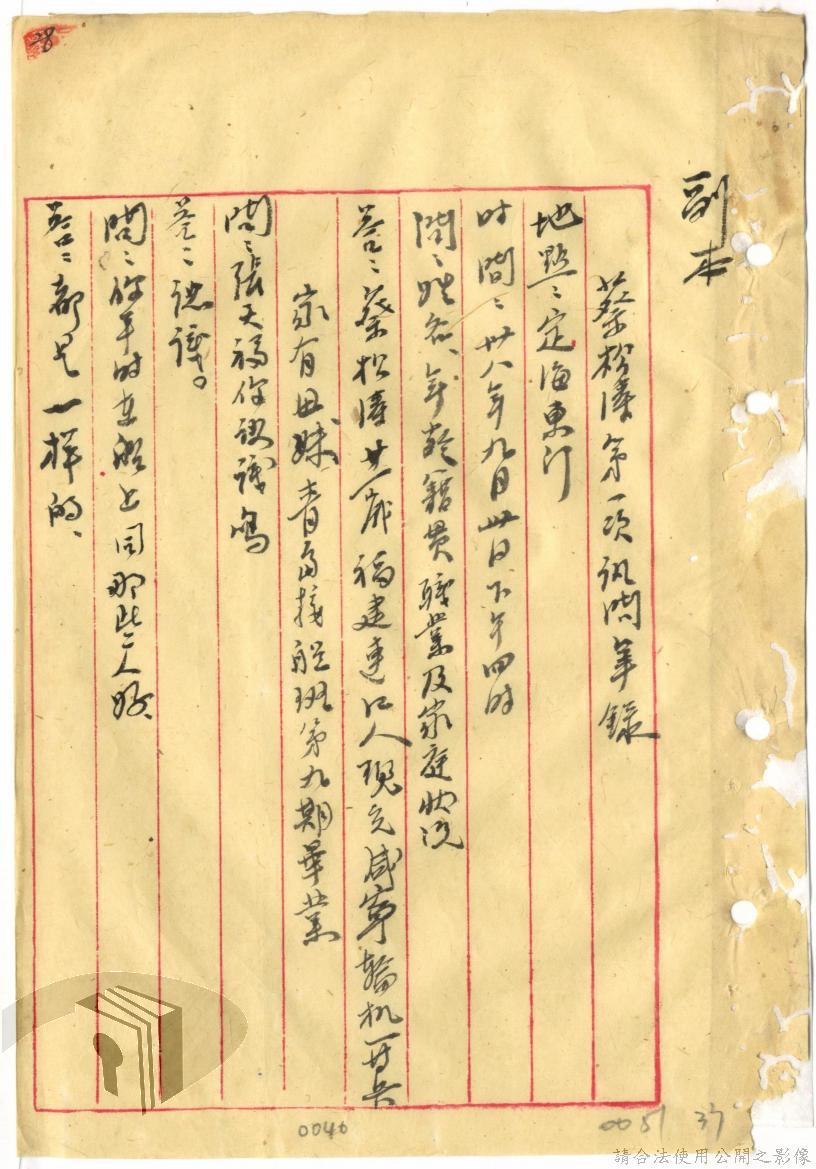 副本
蔡松濤第一次訊問筆錄
地點：定海東門
时間：卅八年九月卅日下午四时
問：姓名、年齡籍貫職業及家庭狀況
答：蔡松濤廿一歲福建連江人現充咸寧輪机一等兵
家有母妹青島接艇班第九期畢業
問：張天福你認識嗎
答：認識。
問：你平时在船上同那些人好、
答：都是一样的、
28
0046
0051 37
請合法使用公開之影像